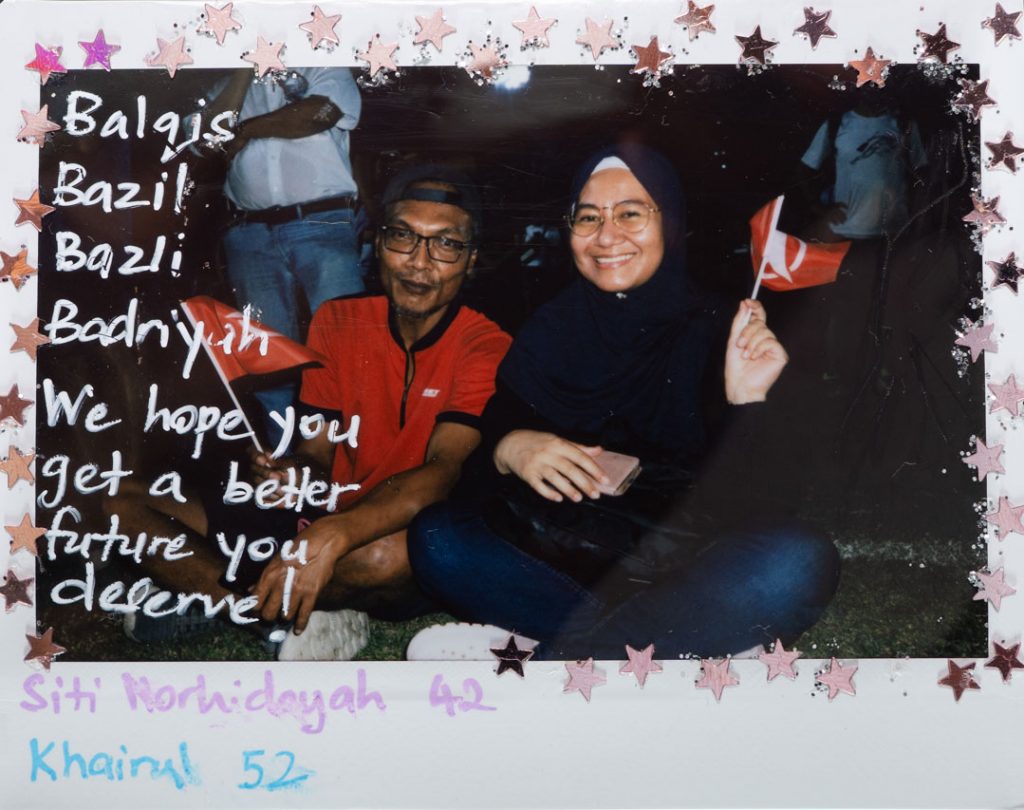 Balqis
Bazil
Bazli
Badriyah
We hope you
get a better
future you
deserve!
Siti Norhidayah 42
Khairul 52